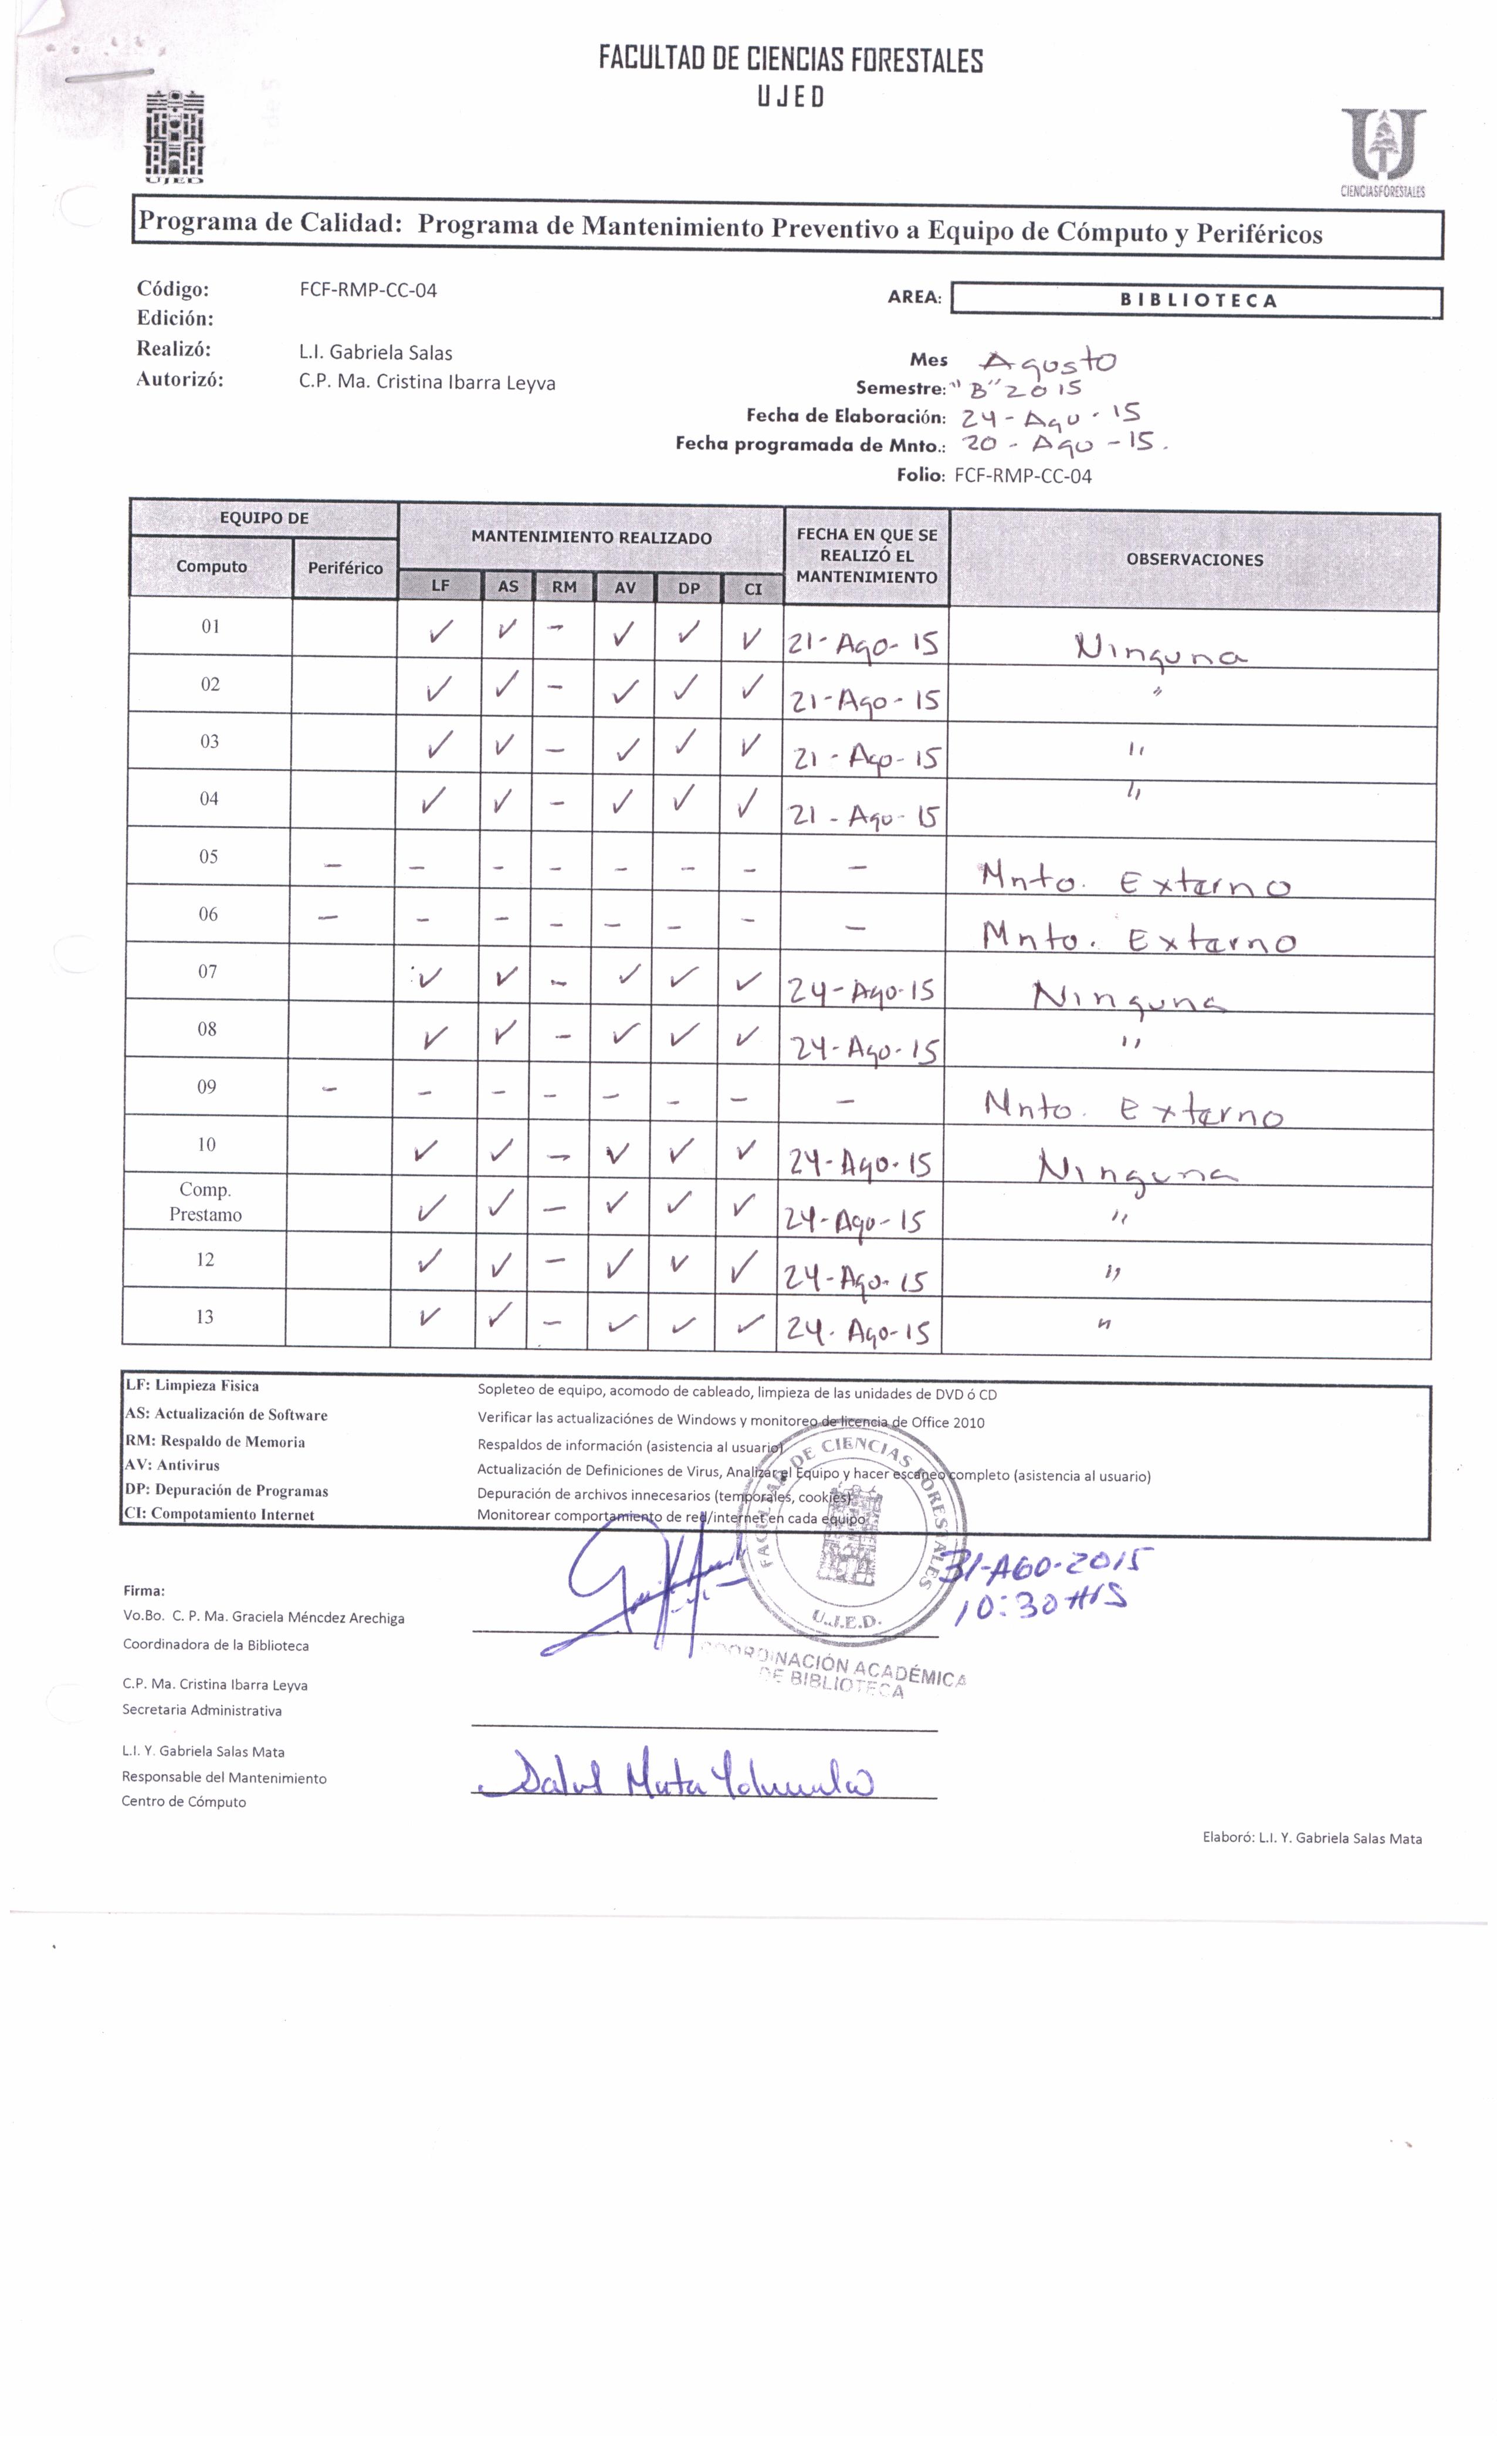 FACULTAD DE CIENCIAS FORESTALES
UJED
UJED
CIENCIASFORESTALES
Programa de Calidad: Programa de Mantenimiento Preventivo a Equipo de Cómputo y Periféricos
Código: FCF-RMP-CC-04
AREA: BIBLIOTECA
Edición:
Realizó: L.I. Gabriela Salas
Autorizó: C.P. Ma. Cristina Ibarra Leyva
Mes Agosto
Semestre: "B" 2015
Fecha de Elaboración: 24-Ago-15
Fecha programada de Mnto.: 20-Ago-15.
Folio: FCF-RMP-CC-04
EQUIPO DE MANTENIMIENTO REALIZADO FECHA EN QUE SE REALIZÓ EL MANTENIMIENTO OBSERVACIONES
Computo Periférico LF AS RM AV DP CI
01 ✓ ✓ - ✓ ✓ ✓ 21-Ago-15 Ninguna
02 ✓ ✓ - ✓ ✓ ✓ 21-Ago-15 "
03 ✓ ✓ - ✓ ✓ ✓ 21-Ago-15 "
04 ✓ ✓ - ✓ ✓ ✓ 21-Ago-15 "
05 - - - - - - - - Mnto. Externo
06 - - - - - - - - Mnto. Externo
07 ✓ ✓ - ✓ ✓ ✓ 24-Ago-15 Ninguna
08 ✓ ✓ - ✓ ✓ ✓ 24-Ago-15 "
09 - - - - - - - - Mnto. Externo
10 ✓ ✓ - ✓ ✓ ✓ 24-Ago-15 Ninguna
Comp. Prestamo ✓ ✓ - ✓ ✓ ✓ 24-Ago-15 "
12 ✓ ✓ - ✓ ✓ ✓ 24-Ago-15 "
13 ✓ ✓ - ✓ ✓ ✓ 24-Ago-15 "
LF: Limpieza Fisica Sopleteo de equipo, acomodo de cableado, limpieza de las unidades de DVD ó CD
AS: Actualización de Software Verificar las actualizaciónes de Windows y monitoreo de licencia de Office 2010
RM: Respaldo de Memoria Respaldos de información (asistencia al usuario)
AV: Antivirus Actualización de Definiciones de Virus, Analizar el Equipo y hacer escaneo completo (asistencia al usuario)
DP: Depuración de Programas Depuración de archivos innecesarios (temporales, cookies)
CI: Compotamiento Internet Monitorear comportamiento de red/internet en cada equipo
FACULTAD DE CIENCIAS FORESTALES
U.J.E.D.
COORDINACIÓN ACADÉMICA
DE BIBLIOTECA
31-AGO-2015
10:30 Hrs
Firma:
Vo.Bo. C. P. Ma. Graciela Méncdez Arechiga
Coordinadora de la Biblioteca
C.P. Ma. Cristina Ibarra Leyva
Secretaria Administrativa
L.I. Y. Gabriela Salas Mata
Responsable del Mantenimiento
Centro de Cómputo
Elaboró: L.I. Y. Gabriela Salas Mata